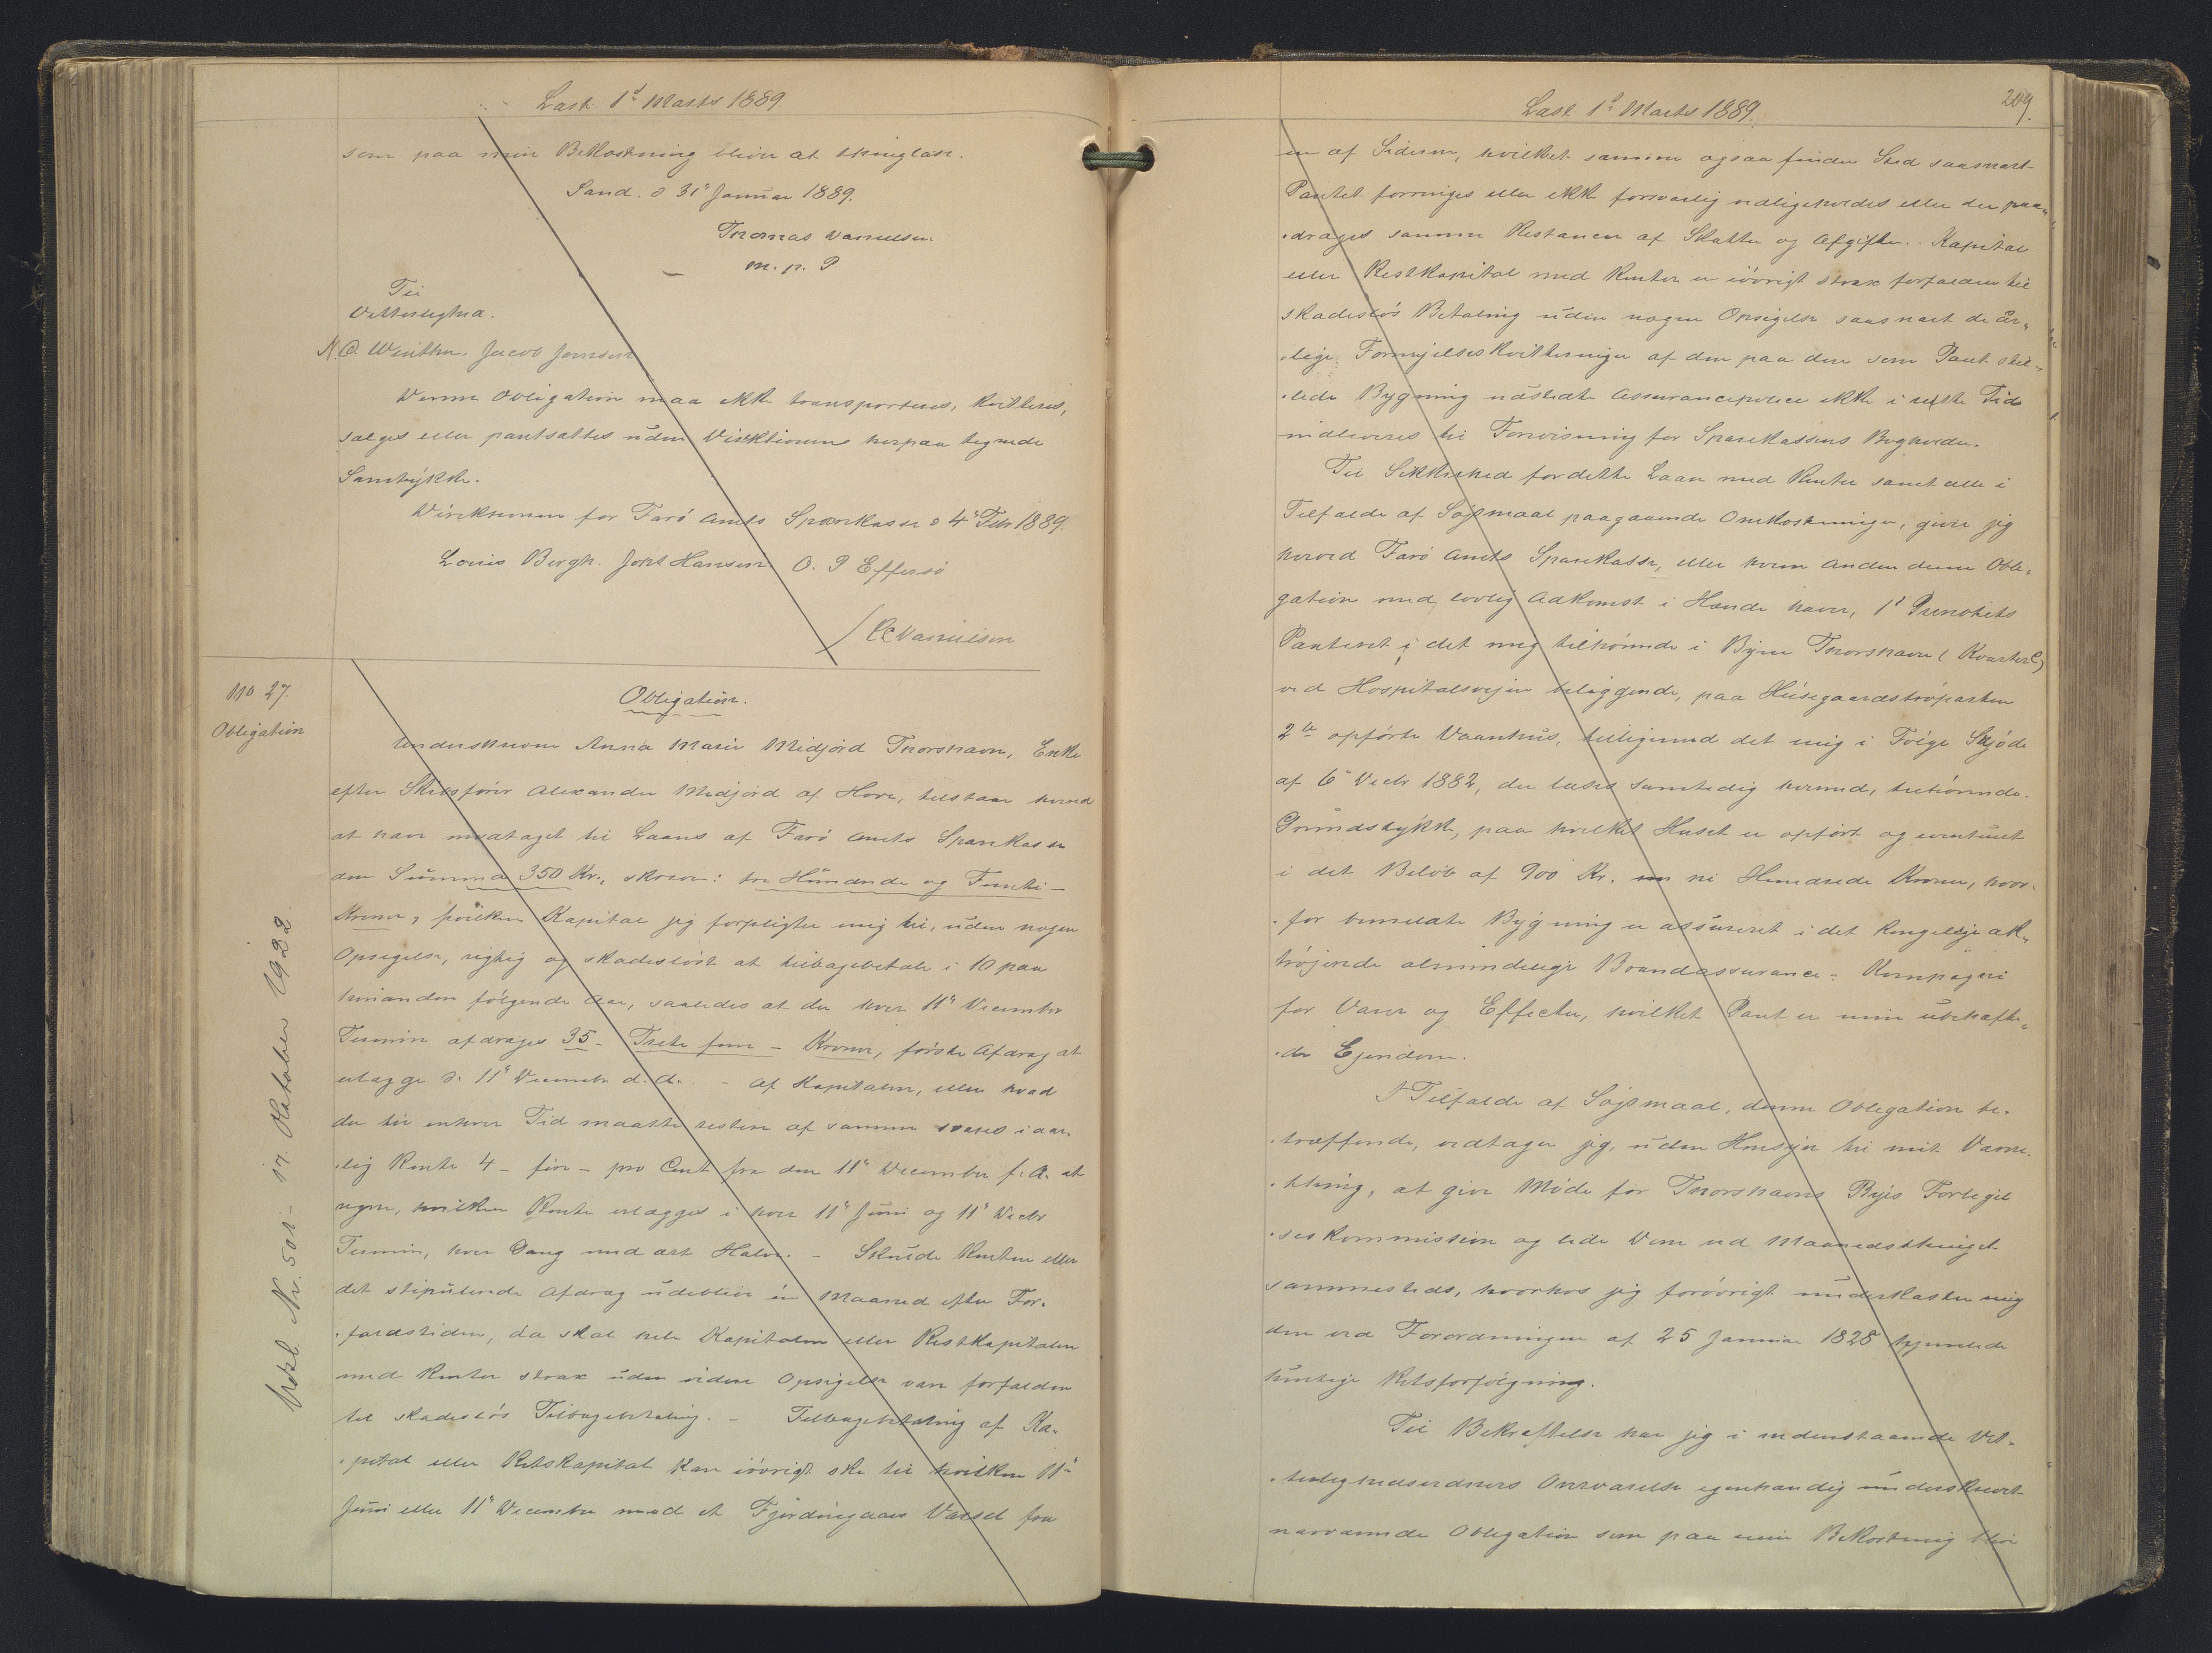 Læst 1ste Marts 1889.
som paa min Bekostning bliver at thinglæse.
Sand. d 31te Januar 1889.
Thomas Danielsen
m. p. P
Til
Vitterlighed.
N. O. Winther. Jacob Joensen
Denne Obligation maa ikke transporteres, kvitteres,
sælges eller pantsættes uden Direktionens herpaa tegnede
Samtykke.
Direktionen for Færö Amts Sparekasse d 4de Febr 1889.
Louis Bergh. Joh Hansen O. P Effersö
/ CC Danielsen
No 27.
Obligation
Obligation.
Underskrevne Anna Marie Midjord Thorshavn, Enke
efter Skibsförer Alexander Midjord af Hove, tilstaar herved
at have modtaget til Laans af Færö Amts Sparekasse
den Summa 350 Kr., skriver: tre Hundrede og Femti-
Kroner, hvilken Kapital jeg forpligter mig til, uden nogen
Opsigelse, rigtig og skadeslöst at tilbagebetale i 10 paa
hinanden fölgende Aar, saaledes at der hver 11te December
Termin afdrages 35 - Treti fem - Kroner, förste Afdrag at
erlægge d. 11te December d. A. - Af Kapitalen, eller hvad
der til enhver Tid maatte restere af samme svares i aar-
-lig Rente 4 - fire - pro Cent fra den 11te December f. A. at
regne, hvilken Rente erlægges i hver 11te Juni og 11te Decbr
Termin, hver Gang med det Halve. - Skulde Renten eller
det stipulerede Afdrag udeblive én Maaned efter For-
-faldstiden, da skal hele Kapitalen eller Restkapitalen
med Renter strax uden videre Opsigelse være forfalden
til skadeslös Tilbagebetaling. - Tilbagebetaling af Ka-
-pital eller Restkapital kan iövrigt ske til hvilken 11te
Juni eller 11te December med et Fjerdingaars Varsel fra
Udsl. Nr. 501 - 17. Oktober 1922.
Læst 1ste Marts 1889.
209.
en af Siderne, hvilket samme ogsaa finder Sted saasnart
Pantet forringes eller ikke forsvarlig vedligeholdes eller der paa-
-drages samme Restancer af Skatter og Afgifter. Kapital
eller Restkapital med Renter er iövrigt strax forfalden til
skadeslös Betaling uden nogen Opsigelse saasnart de år-
-lige Fornyelseskvitteringer af den paa den som Pant stil-
-lede Bygning udstedte Assurancepolice ikke i rette Tid
indleveres til Forevisning for Sparekassens Bogholder.
Til Sikkerhed for dette Laan med Renter samt alle i
Tilfælde af Sögsmaal paagaaende Omkostninger, giver jeg
herved Færö Amts Sparekasse, eller hvem anden denne Obli-
gation med lovlig Adkomst i Hænde haver, 1ste Prioritets
Panteret i det mig tilhörende i Byen Thorshavn (Kvarter C)
ved Hospitalsvejen beliggende, paa Husegaardströparten
2de opförte Vaanhus, tilligemed det mig i Fölge Skjöde
af 6te Decbr 1882, der læses samtidig hermed, tilhörende
Grundstykke, paa hvilket Huset er opfört og eventuelt
i det Belöb af 900 Kr. ni Hundrede Kroner, hvor-
-for bemeldte Bygning er assureret i det kongelige ok-
tröjerede almindelige Brandassurance-Kompagni
for Varer og Effecter, hvilket Pant er min ubehæfte-
-de Ejendom.
I Tilfælde af Sögsmaal, denne Obligation be-
-træffende, vedtager jeg, uden Hensyn til mit Værne-
-thing, at give Möde for Thorshavns Byes Forligel
-seskommission og lide Dom ved Maanedsthinget
sammesteds, hvorhos jeg forövrigt underkaster mig
den ved Forordningen af 25 Januar 1828 hjemlede
hurtige Retsforfölgning.
Til Bekræftelse har jeg i nedenstaaende Vit-
-terlighedsvidners Overværelse egenhændig underskrevet
nærværende Obligation som paa min Bekostning bliver